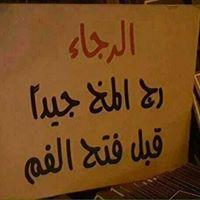 الرجاء
رج المخ جيداً
قبل فتح الفم